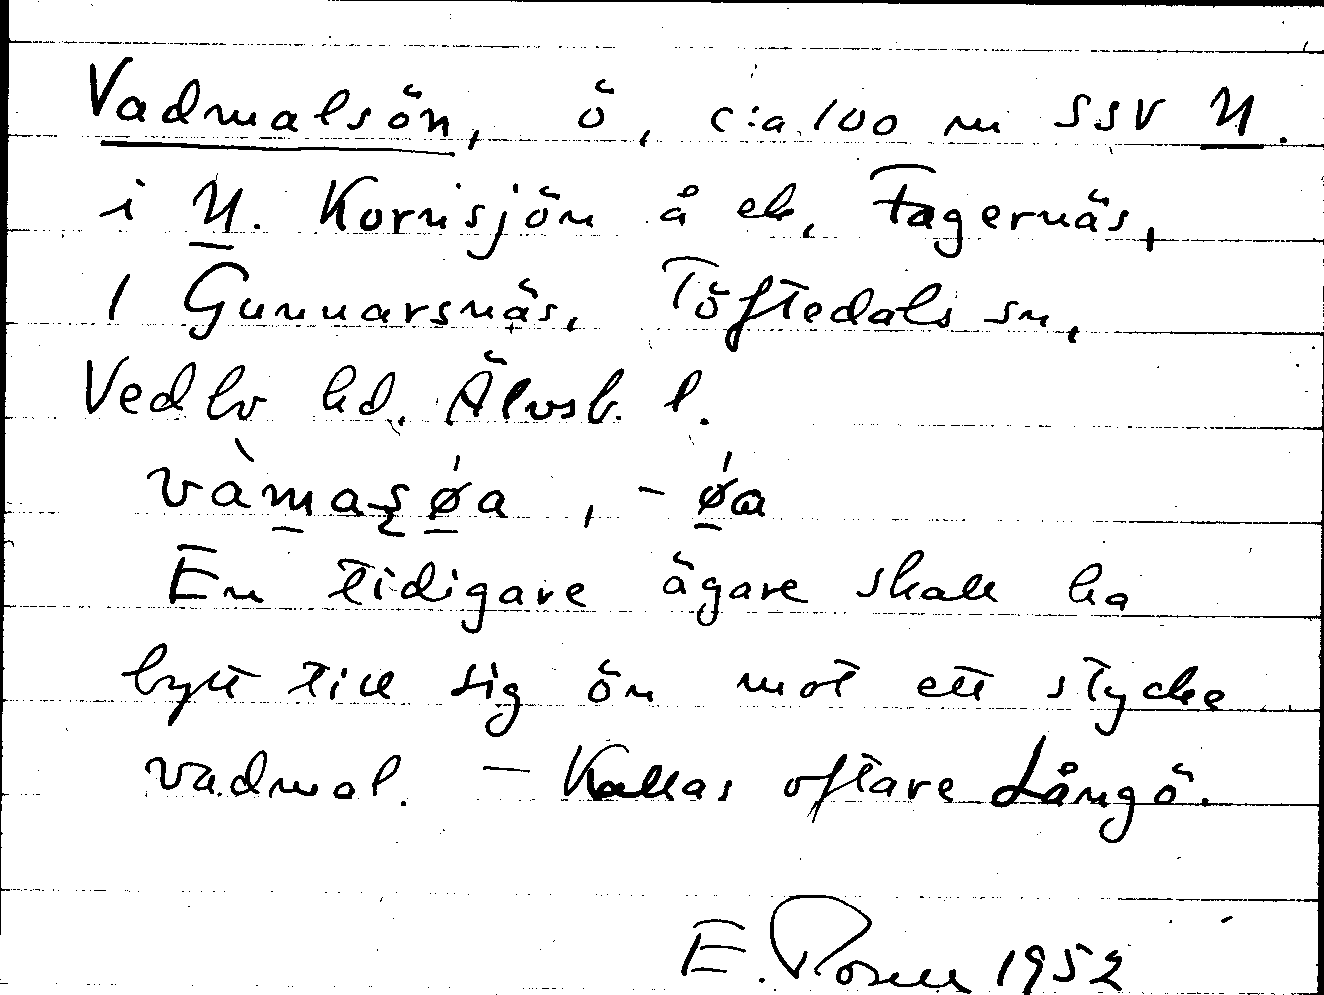 Vadmalsön, ö, c:a 100 m SSV N.
i N. Kornsjön å ek. Fagernäs,
1 Gunnarsnäs, Töftedals sn,
Vedbo hd. Älvsb. l.
vàmaʂø̀a, -øa
En tidigare ägare skall ha
bytt till sig ön mot ett stycke
vadmal. — Kallas oftare Långö.
E. 1952